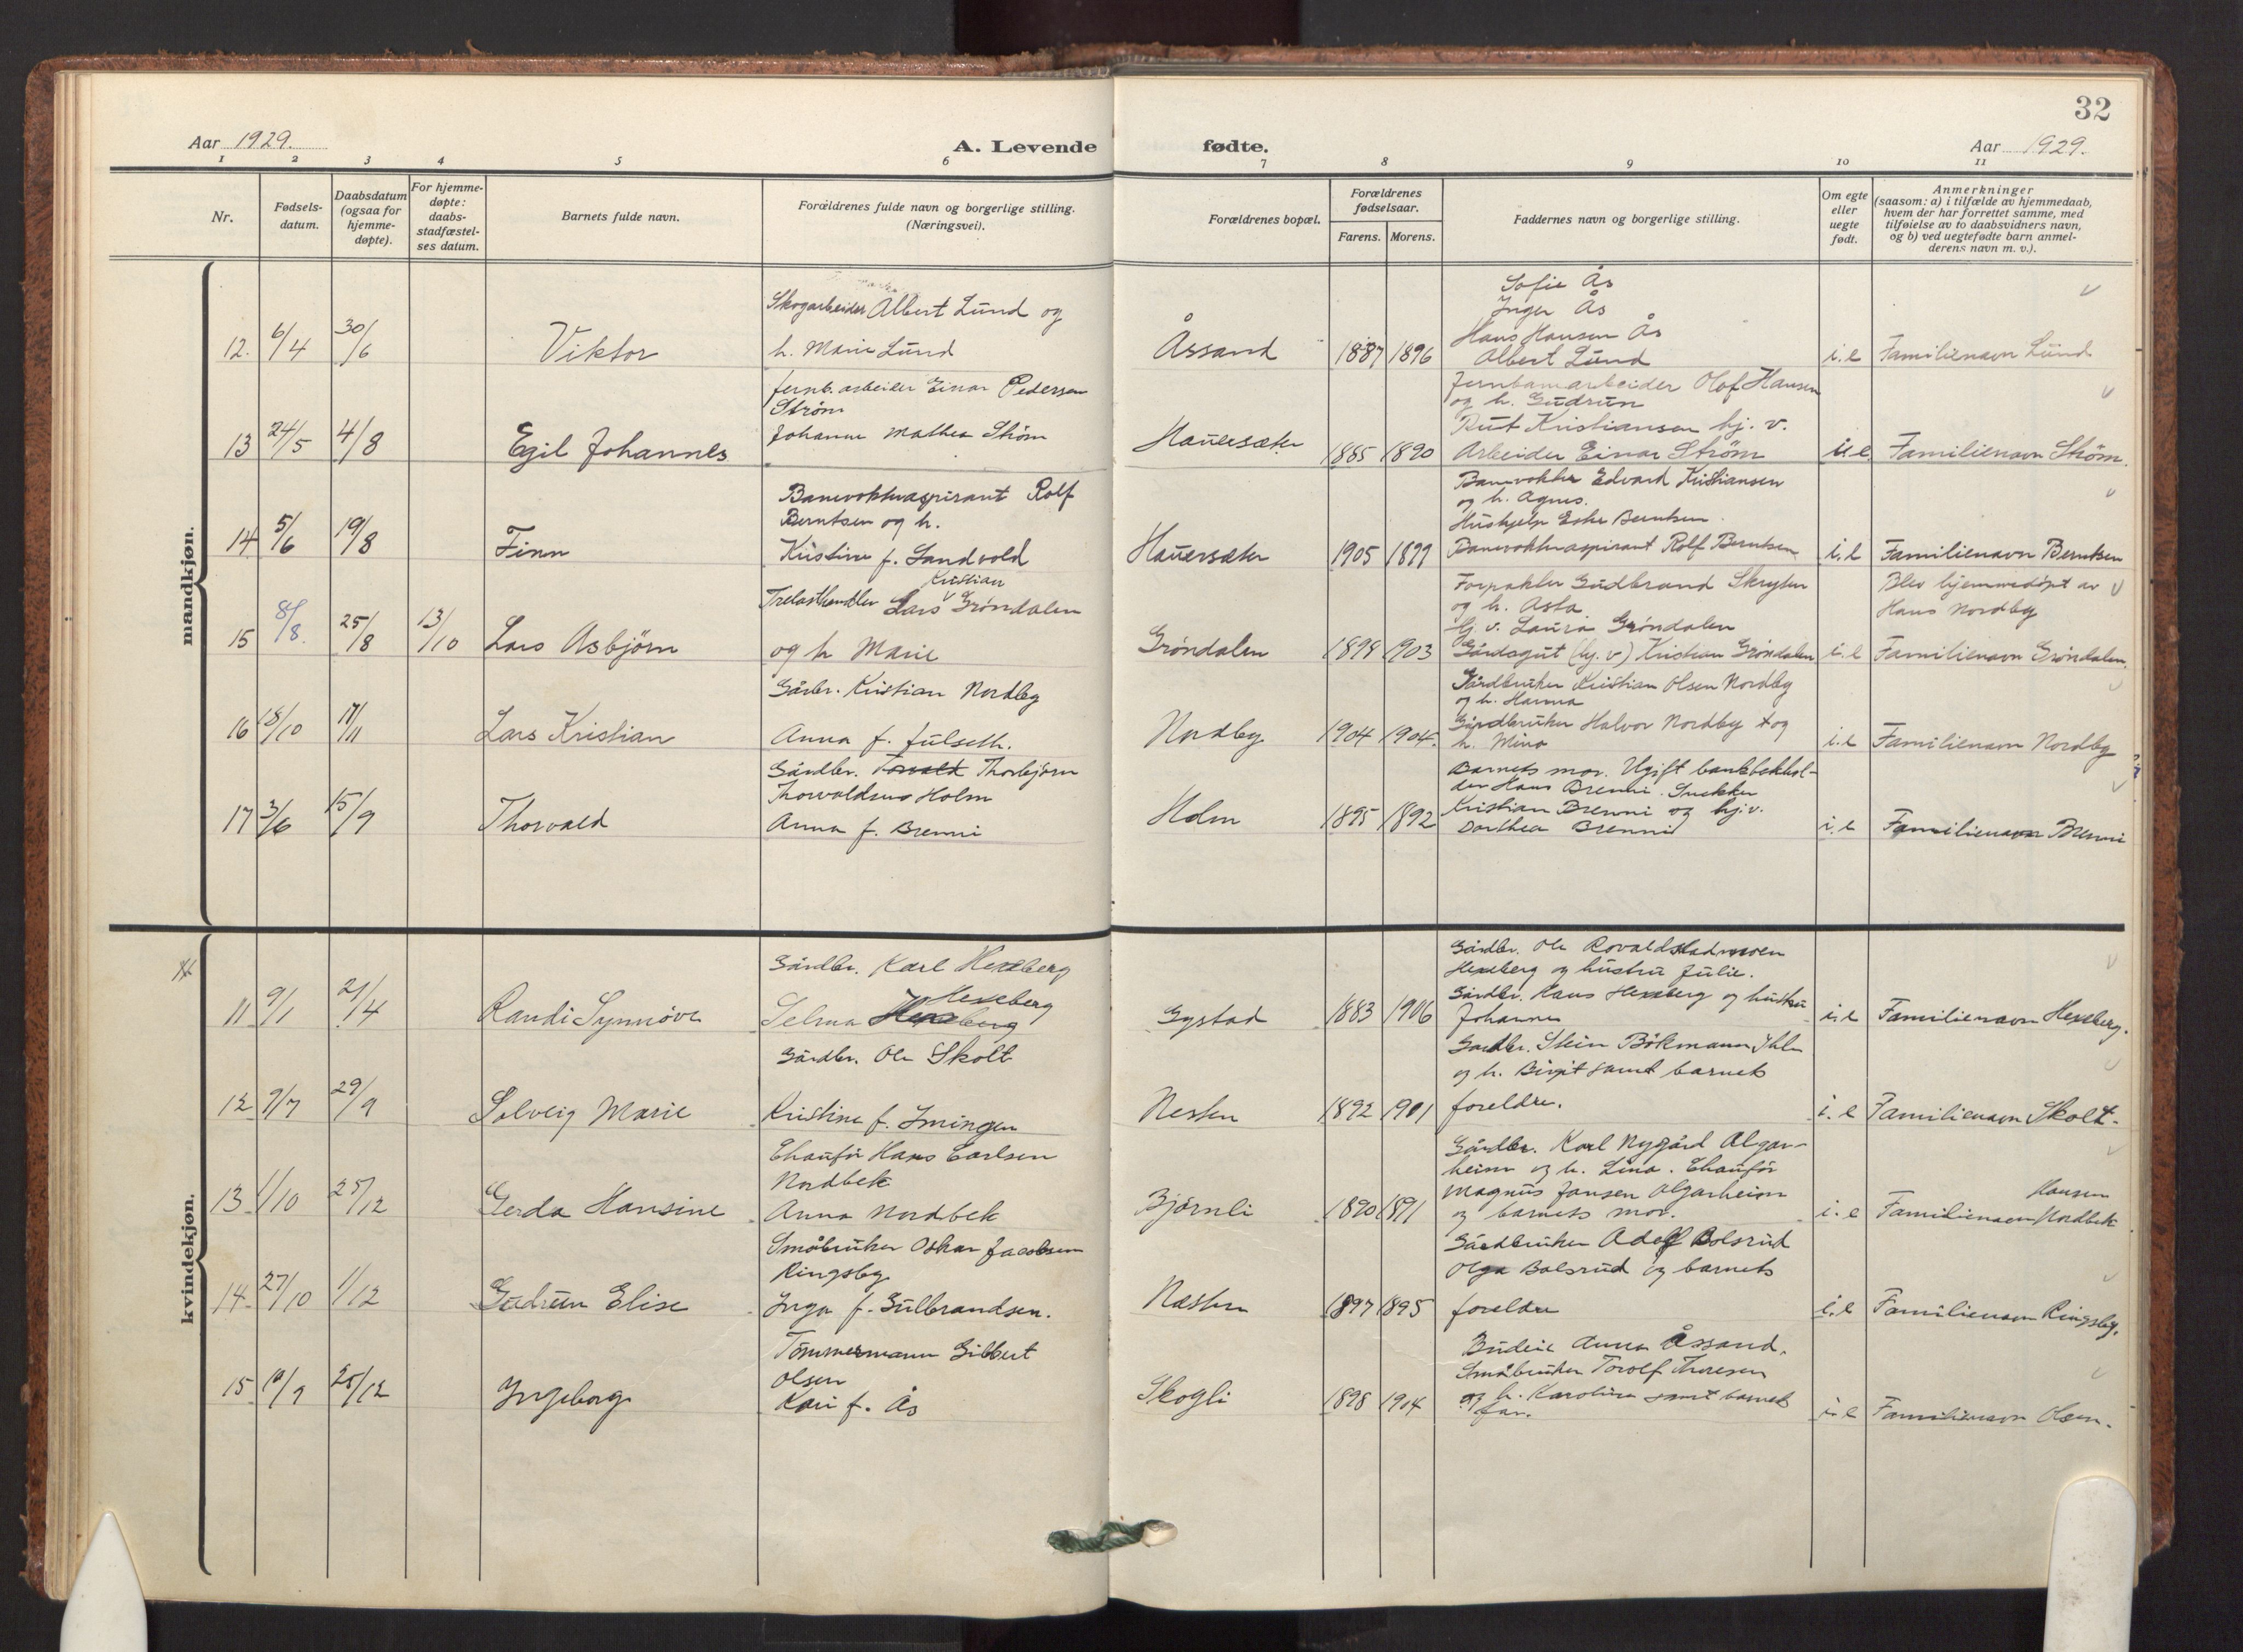 32
Aar 1929.
A. Levende fødte.
Aar 1929.
1 2 3 4 5 6 7 8 9 10 11
Nr.
Fødsels-
datum.
Daabsdatum
(ogsaa for
hjemme-
døpte).
For hjemme-
døpte:
daabs-
stadfæstel-
ses datum.
Barnets fulde navn.
Forældrenes fulde navn og borgerlige stilling.
(Næringsvei).
Forældrenes bopæl.
Forældrenes
fødselsaar.
Farens. Morens.
Faddernes navn og borgerlige stilling.
Om egte
eller
uegte
født.
Anmerkninger
(saasom: a) i tilfælde av hjemmedaab,
hvem der har forrettet samme, med
tilføielse av to daabsvidners navn,
og b) ved uegtefødte barn anmel-
derens navn m. v.).
mandkjøn.
12. 6/4 30/6 Viktor
Skogarbeider Albert Lund og
h. Marie Lund
Åssand 1887 1896
Sofie Ås
Inger Ås
Hans Hansen Ås
Albert Lund
i.e Familienavn Lund
13 24/5 4/8 Egil Johannes
jernb. arbeider Einar Pedersen
Strøm
Johanne Mathea Strøm
Hauersæter 1885 1890
Jernbanearbeider Olof Hansen
og h. Gudrun
Rut Kristiansen hj. v.
Arbeider Einar Strøm
i.e. Familienavn Strøm.
14 5/6 19/8 Finn
Banevokteraspirant Rolf
Berntsen og h.
Kristine f. Sandvold
Hauersæter 1905 1899
Banevokter Edvard Kristiansen
og h. Agnes.
Hushjelp Berntsen.
Banevokteraspirant Rolf Berntsen
i.e Familienavn Berntsen
15 8/8. 25/8 13/10 Lars Asbjørn
Kristian
Trelasthandler Lars Grøndalen
og h Marie
Grøndalen 1903
Forpakter Gudbrand Skryten
og h. Asta
hj. v. Laura Grøndalen
Gårdsgut (hj. v) Kristian Grøndalen
i.e
Blev hjemmedøpt av
Hans Nordby
Familienavn Grøndalen.
16 18/10 17/11 Lars Kristian
Gårbr. Kristian Nordby
Anna f. Julseth.
Nordby 1904 1904.
Gårdbruker Kristian Olsen Nordby
og h. Hanna
Gårdbruker Halvor Nordby og
h. Mina
i.e Familienavn Nordby
17 3/6 15/9 Thorvald
Gårdbr. Torvald Thorbjørn
Thorvaldsen Holm
Anna f. Brenni
Holm 1895 1892
Barnets mor. Ugift bankbokhol-
der Hans Brenni. Snekker
Kristian Brenni og hj.v.
Dorthea Brenni
i.e Familienavn Brenni
kvindekjøn.
11 9/1 21/4 Randi Synnøve
Gårdbr. Karl Hexeberg
Hexeberg
Selma Hexeberg
Gystad 1883 1906
Gårdbr. Ole Rovaldstadmoen
Hexeberg og hustru Julie.
Gårdbr. Hans Hexeberg og hustru
Johanne
i.e Familienavn Hexeberg.
12 9/7 29/9 Solveig Marie
Gårdbr. Ole Skolt
Kristine f. Imingen
Nesten 1892 1901
Gårdbr. Stein Bökmann Ihle
og h. Birgit samt barnets
foreldre.
i.e Familienavn Skolt.
13 1/10 25/12 Gerda Hansine
Chaufør Hans Carlsen
Nordbek
Anna Nordbek
Björnli 1890 1891
Gårdbr. Karl Nygård Algar-
heim og h. Lina. Chaufør
Magnus Jansen Algarheim
og barnets mor.
Hansen
i.e Familienavn Nordbek
14. 27/10 1/12 Gudrun Elise
Småbruker Oskar Jacobsen
Ringsby
Inga f. Gulbrandsen.
Næsten 1897 1895
Gårdbruker Adolf Bolsrud
Olga Bolsrud og barnets
foreldre
i.e Familienavn Ringsby.
15 25/12 Ingeborg
Tømmermann Gilbert
Olsen
Kari f. Ås
Skogli 1898 1904
Budeie Anna Åssand.
Småbruker Torolf Thoresen
og h. Karoline samt barnets
far.
i.e Familienavn Olsen.